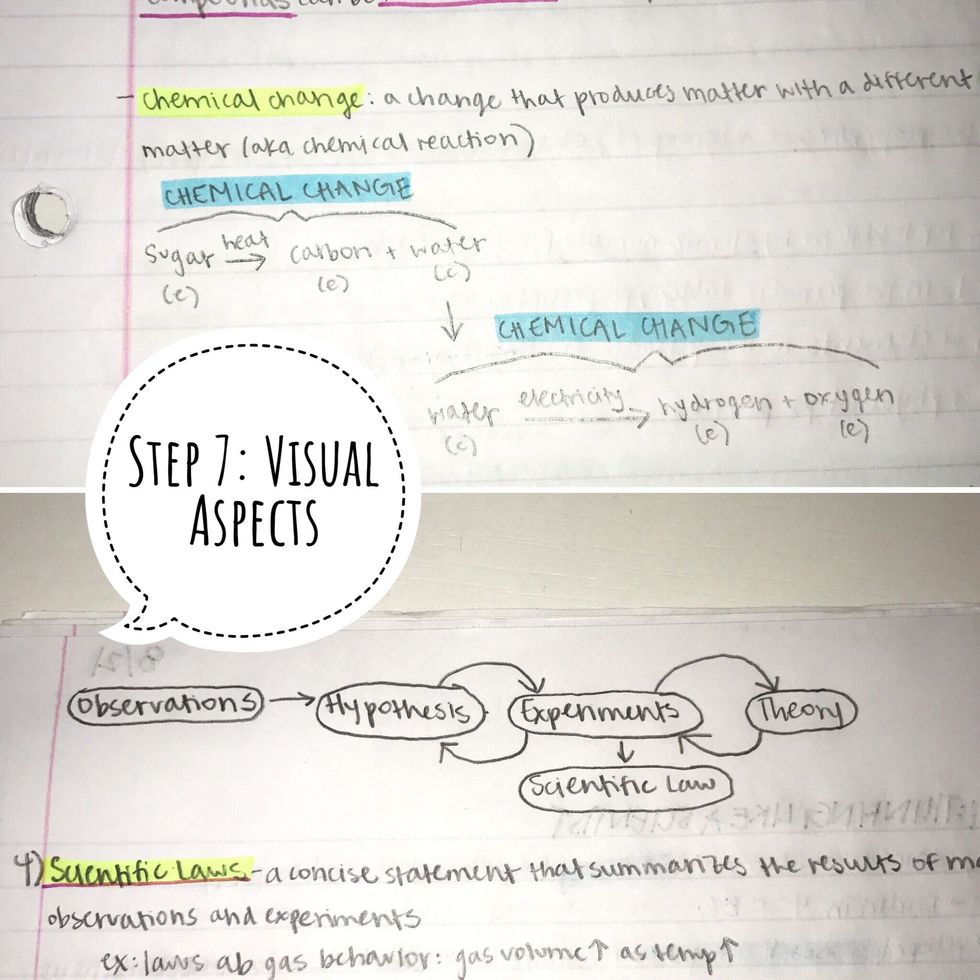 compounds can be
- chemical change: a change that produces matter with a different
matter (aka chemical reaction)
CHEMICAL CHANGE
sugar heat → carbon + water
(c) (e) (c)
↓
CHEMICAL CHANGE
water electricity → hydrogen + oxygen
(c) (e) (e)
STEP 7: VISUAL
ASPECTS
8/21
Observations → Hypothesis Experiments Theory
↓
Scientific Law
: THINKING LIKE A SCIENTIST
4) Scientific Laws - a concise statement that summarizes the results of
observations and experiments
ex: laws ab gas behavior: gas volume ↑ as temp ↑